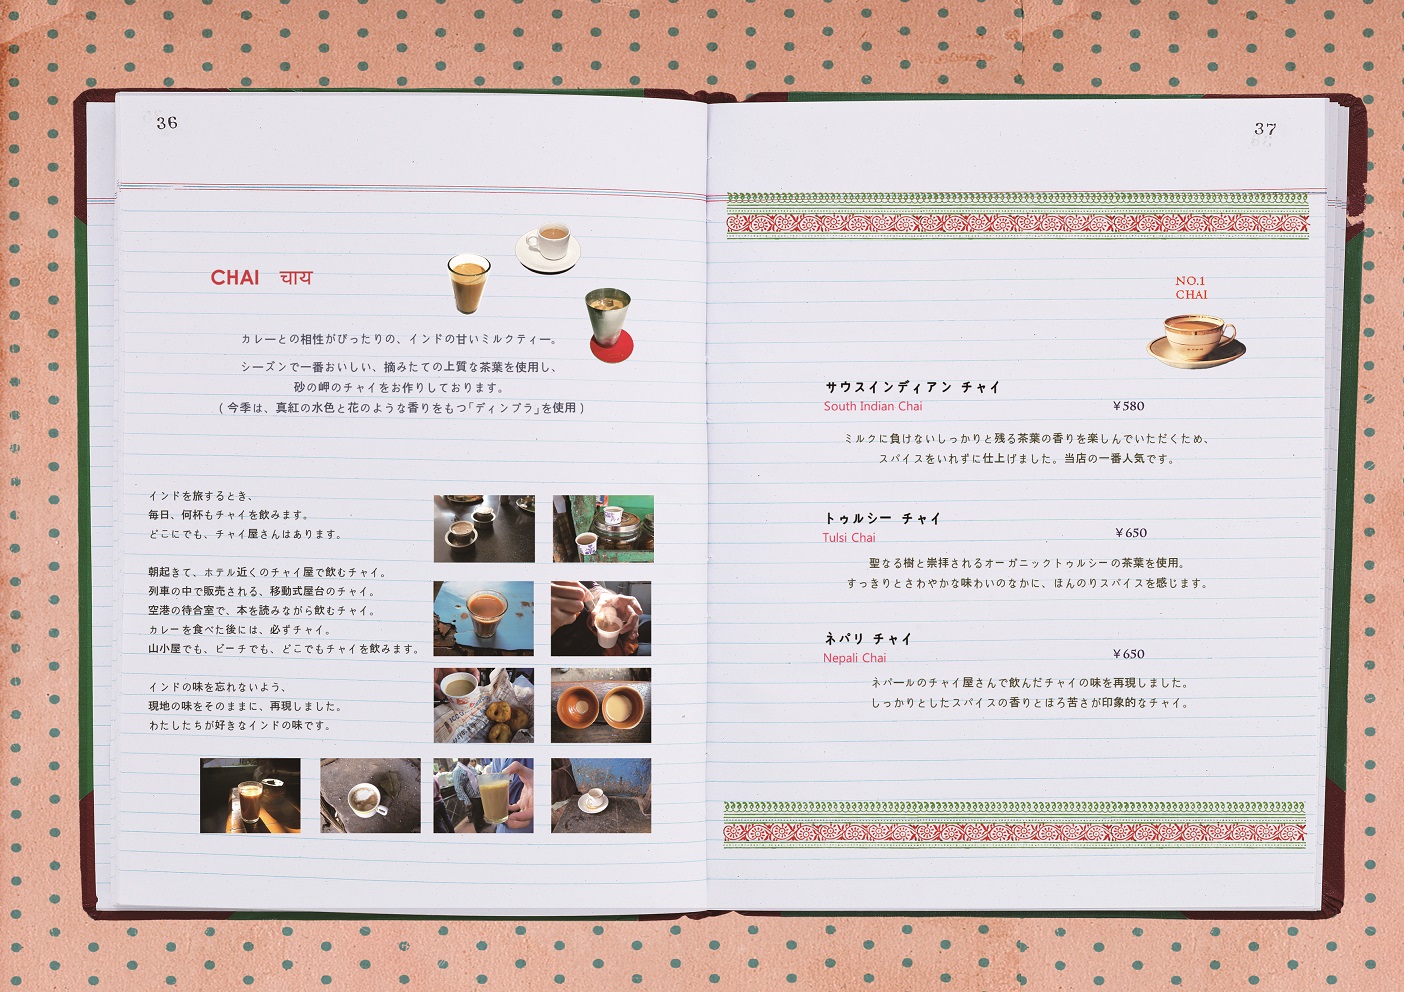 36
CHAI चाय
カレーとの相性がぴったりの、インドの甘いミルクティー。
シーズンで一番おいしい、摘みたての上質な茶葉を使用し、
砂の岬のチャイをお作りしております。
( 今季は、真紅の水色と花のような香りをもつ「ディンブラ」を使用 )
インドを旅するとき、
毎日、何杯もチャイを飲みます。
どこにでも、チャイ屋さんはあります。
朝起きて、ホテル近くのチャイ屋で飲むチャイ。
列車の中で販売される、移動式屋台のチャイ。
空港の待合室で、本を読みながら飲むチャイ。
カレーを食べた後には、必ずチャイ。
山小屋でも、ビーチでも、どこでもチャイを飲みます。
インドの味を忘れないよう、
現地の味をそのままに、再現しました。
わたしたちが好きなインドの味です。
37
NO.1
CHAI
サウスインディアン チャイ
South Indian Chai ¥580
ミルクに負けないしっかりと残る茶葉の香りを楽しんでいただくため、
スパイスをいれずに仕上げました。当店の一番人気です。
トゥルシー チャイ
Tulsi Chai ¥650
聖なる樹と崇拝されるオーガニックトゥルシーの茶葉を使用。
すっきりとさわやかな味わいのなかに、ほんのりスパイスを感じます。
ネパリ チャイ
Nepali Chai ¥650
ネパールのチャイ屋さんで飲んだチャイの味を再現しました。
しっかりとしたスパイスの香りとほろ苦さが印象的なチャイ。